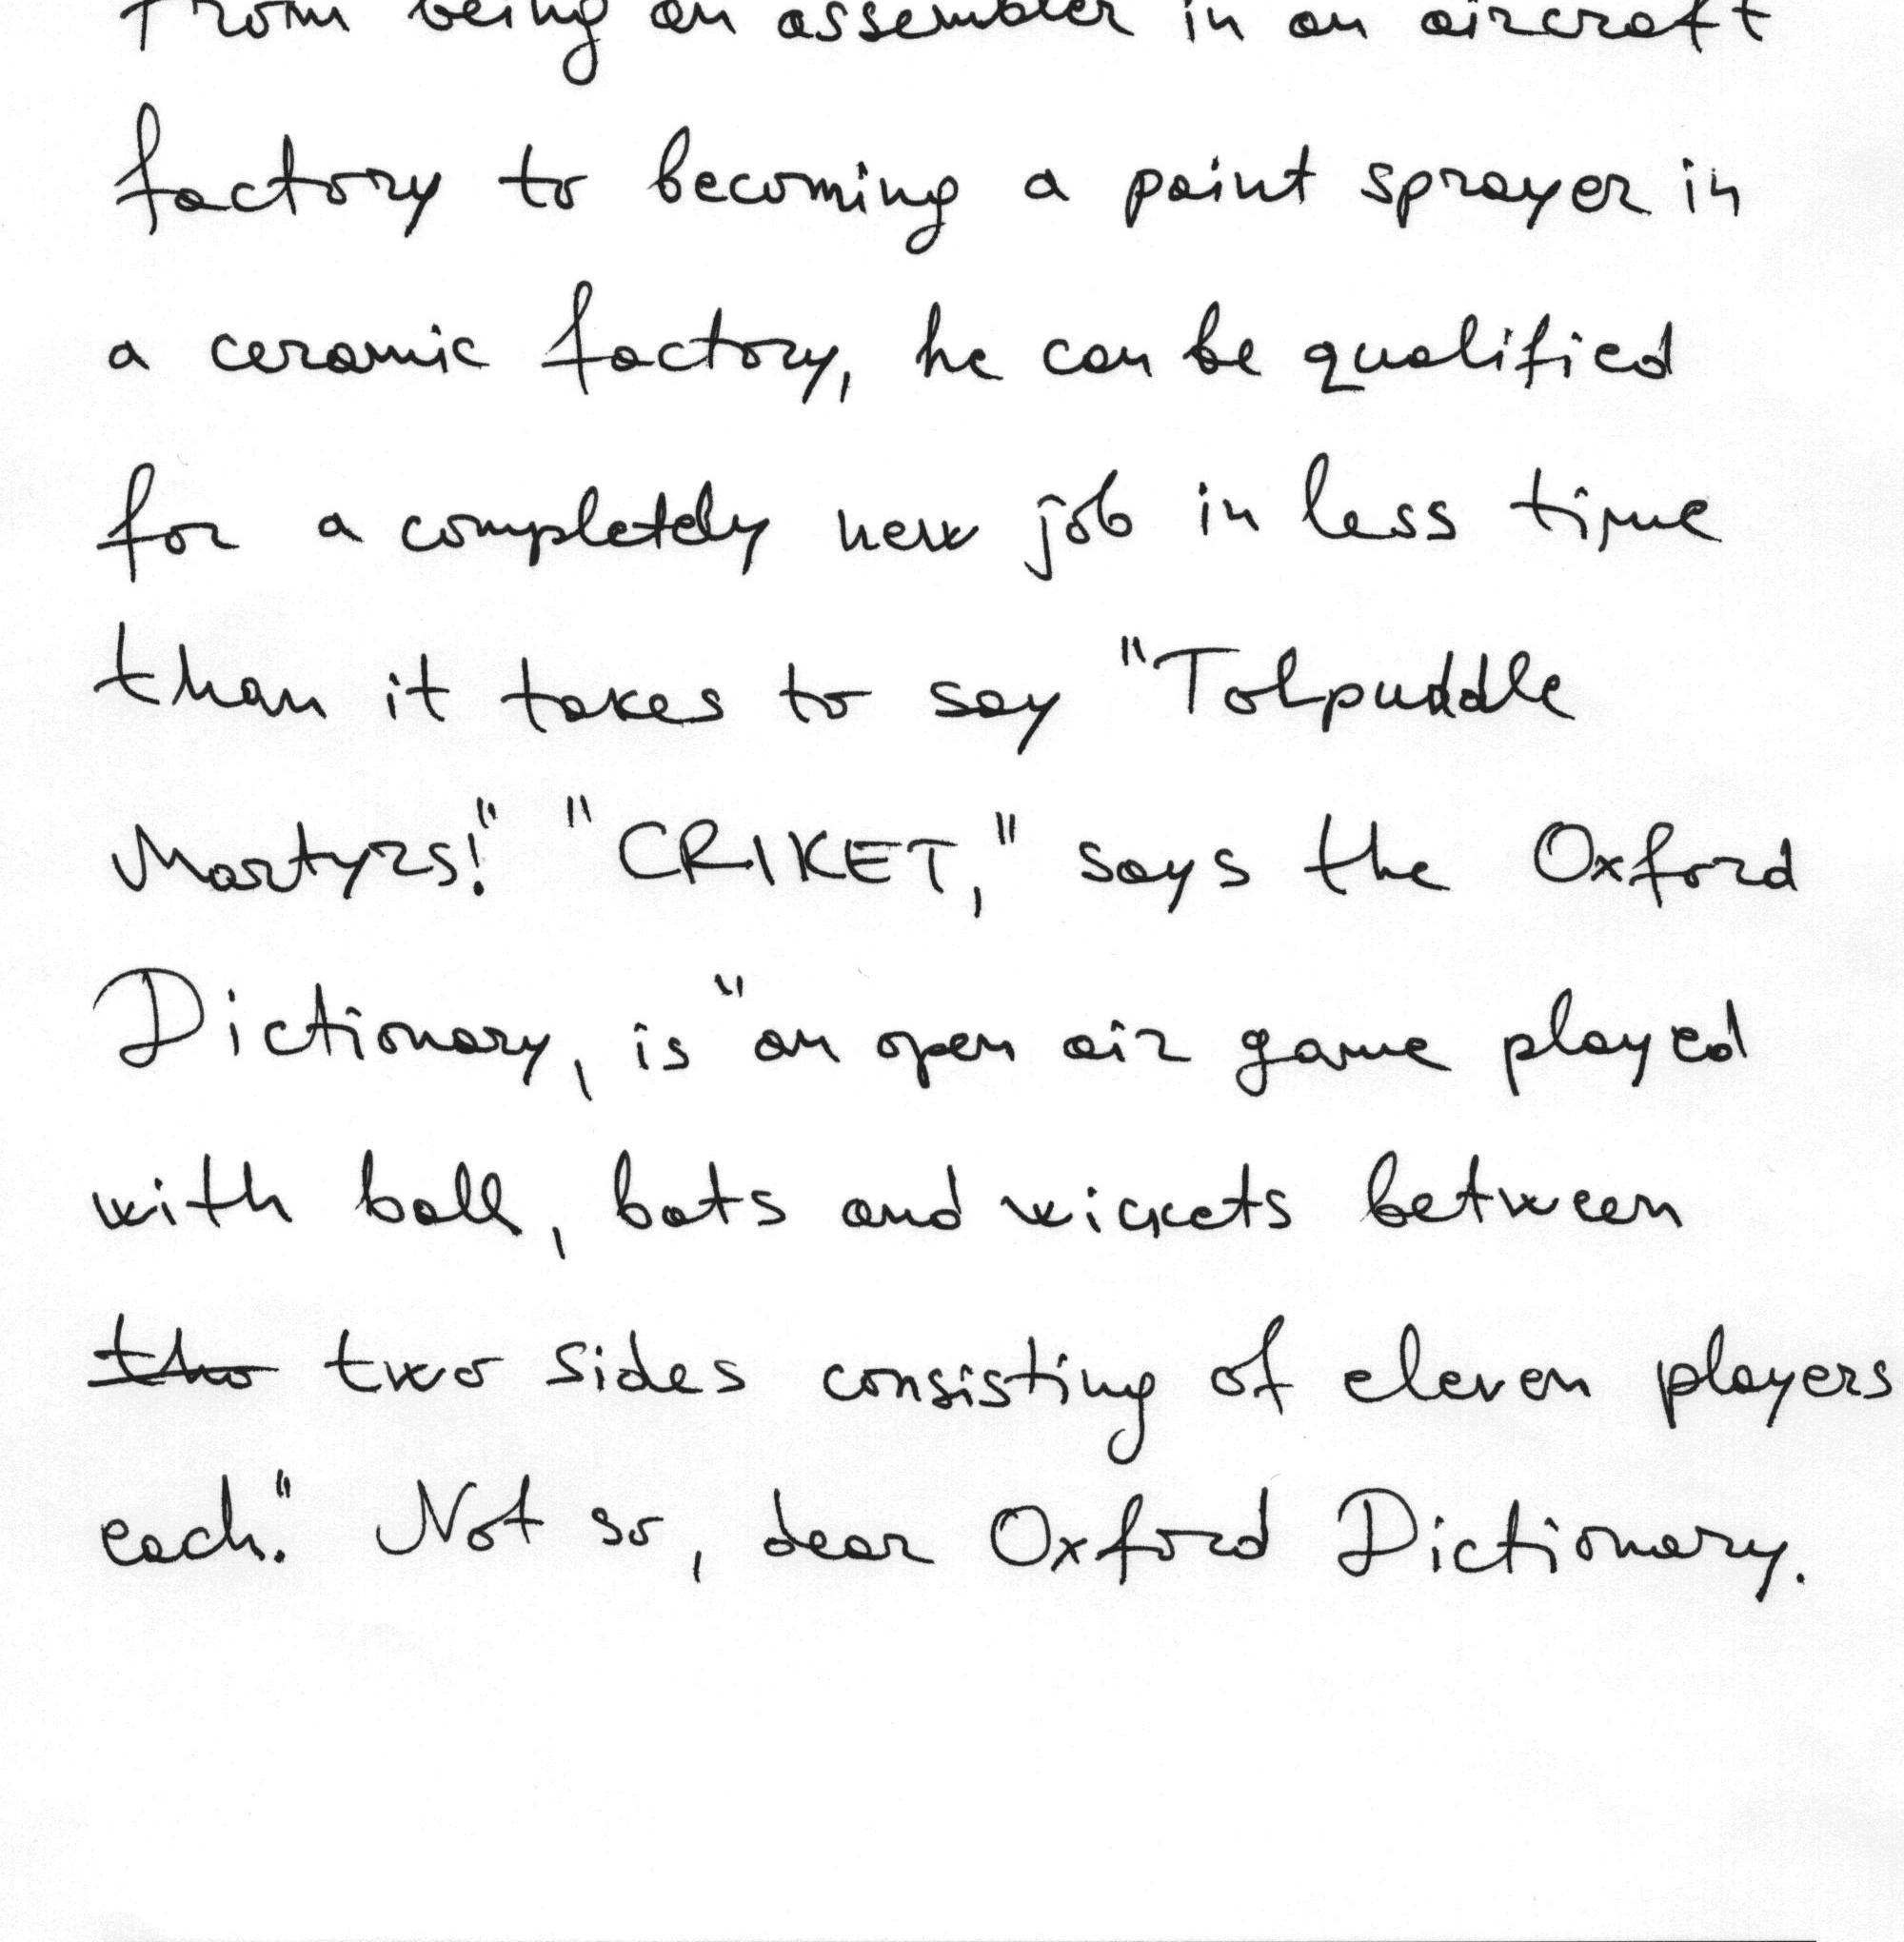 From being an assembler in an aircraft
factory to becoming a paint sprayer in
a ceramic factory, he can be qualified
for a completely new job in less time
than it takes to say "Tolpuddle
Martyrs!" "CRIKET," says the Oxford
Dictionary, is "an open air game played
with ball, bats and wickets between
tho two sides consisting of eleven players
each." Not so, dear Oxford Dictionary.